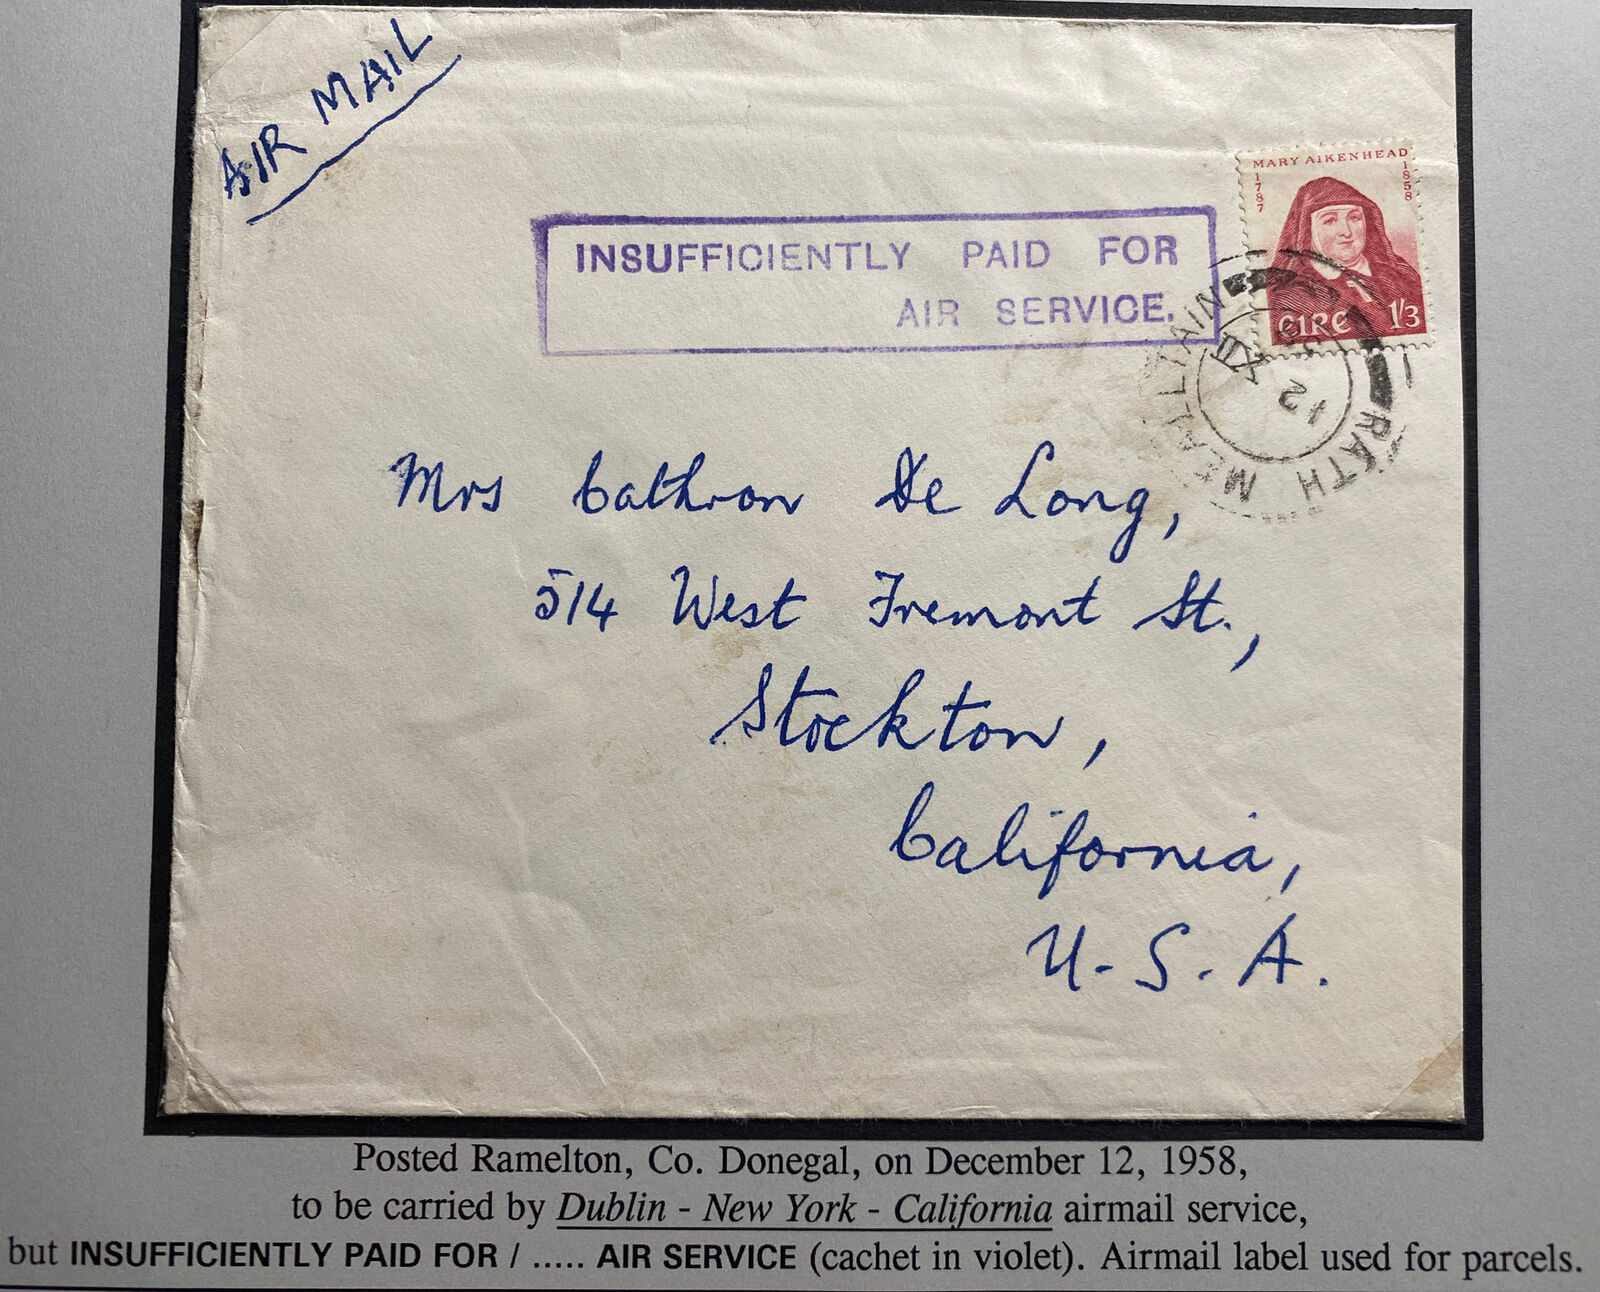 AIR MAIL
MARY AIKENHEAD
1787
1858
EIRE 1/3
INSUFFICIENTLY PAID FOR
AIR SERVICE.
RATH MEALLTAIN
12
XII
58
Mrs Cathron De Long,
514 West Fremont St.,
Stockton,
California,
U.S.A.
Posted Ramelton, Co. Donegal, on December 12, 1958,
to be carried by Dublin - New York - California airmail service,
but INSUFFICIENTLY PAID FOR / ..... AIR SERVICE (cachet in violet). Airmail label used for parcels.